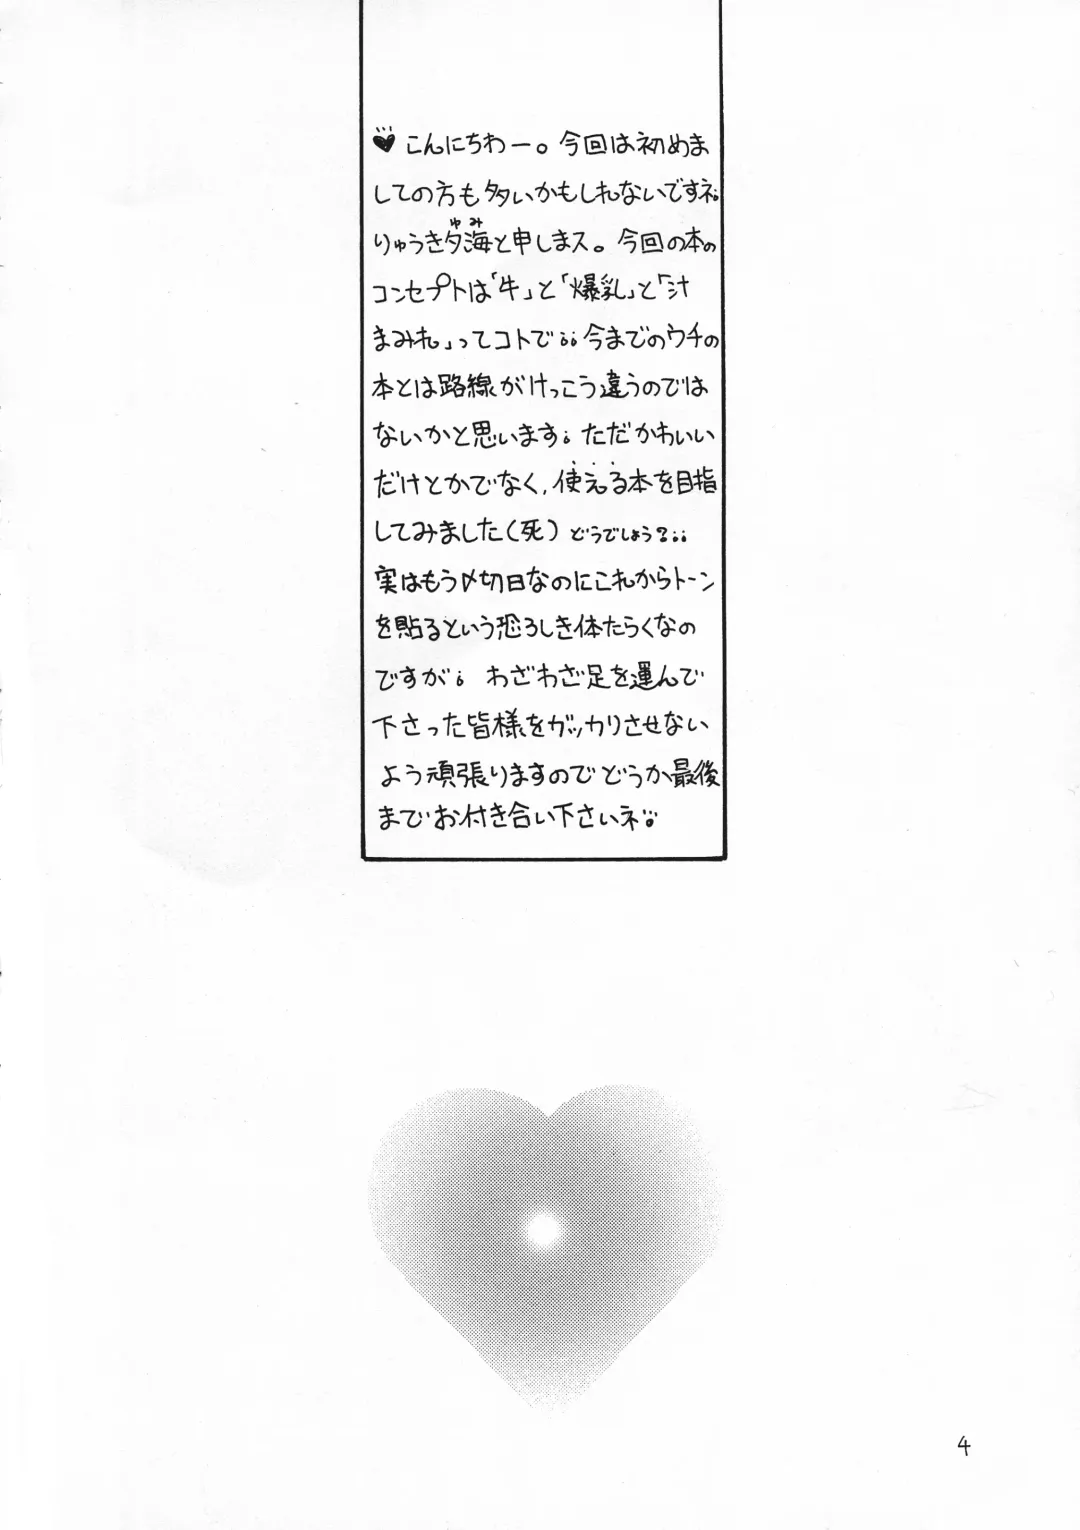 ♥こんにちわー。今回は初めま
しての方も多いかもしれないですネ。
りゅうき夕海と申しまス。今回の本の
ゆみ
コンセプトは「牛」と「爆乳」と「汁
まみれ」ってコトで。。今までのウチの
本とは路線がけっこう違うのでは
ないかと思います。ただかわいい
だけとかでなく、使える本を目指
してみました(死)どうでしょう?。。
実はもう〆切日なのにこれからトーン
を貼るという恐ろしき体たらくなの
ですが。わざわざ足を運んで
下さった皆様をガッカリさせない
よう頑張りますのでどうか最後
までお付き合い下さいネ。
4